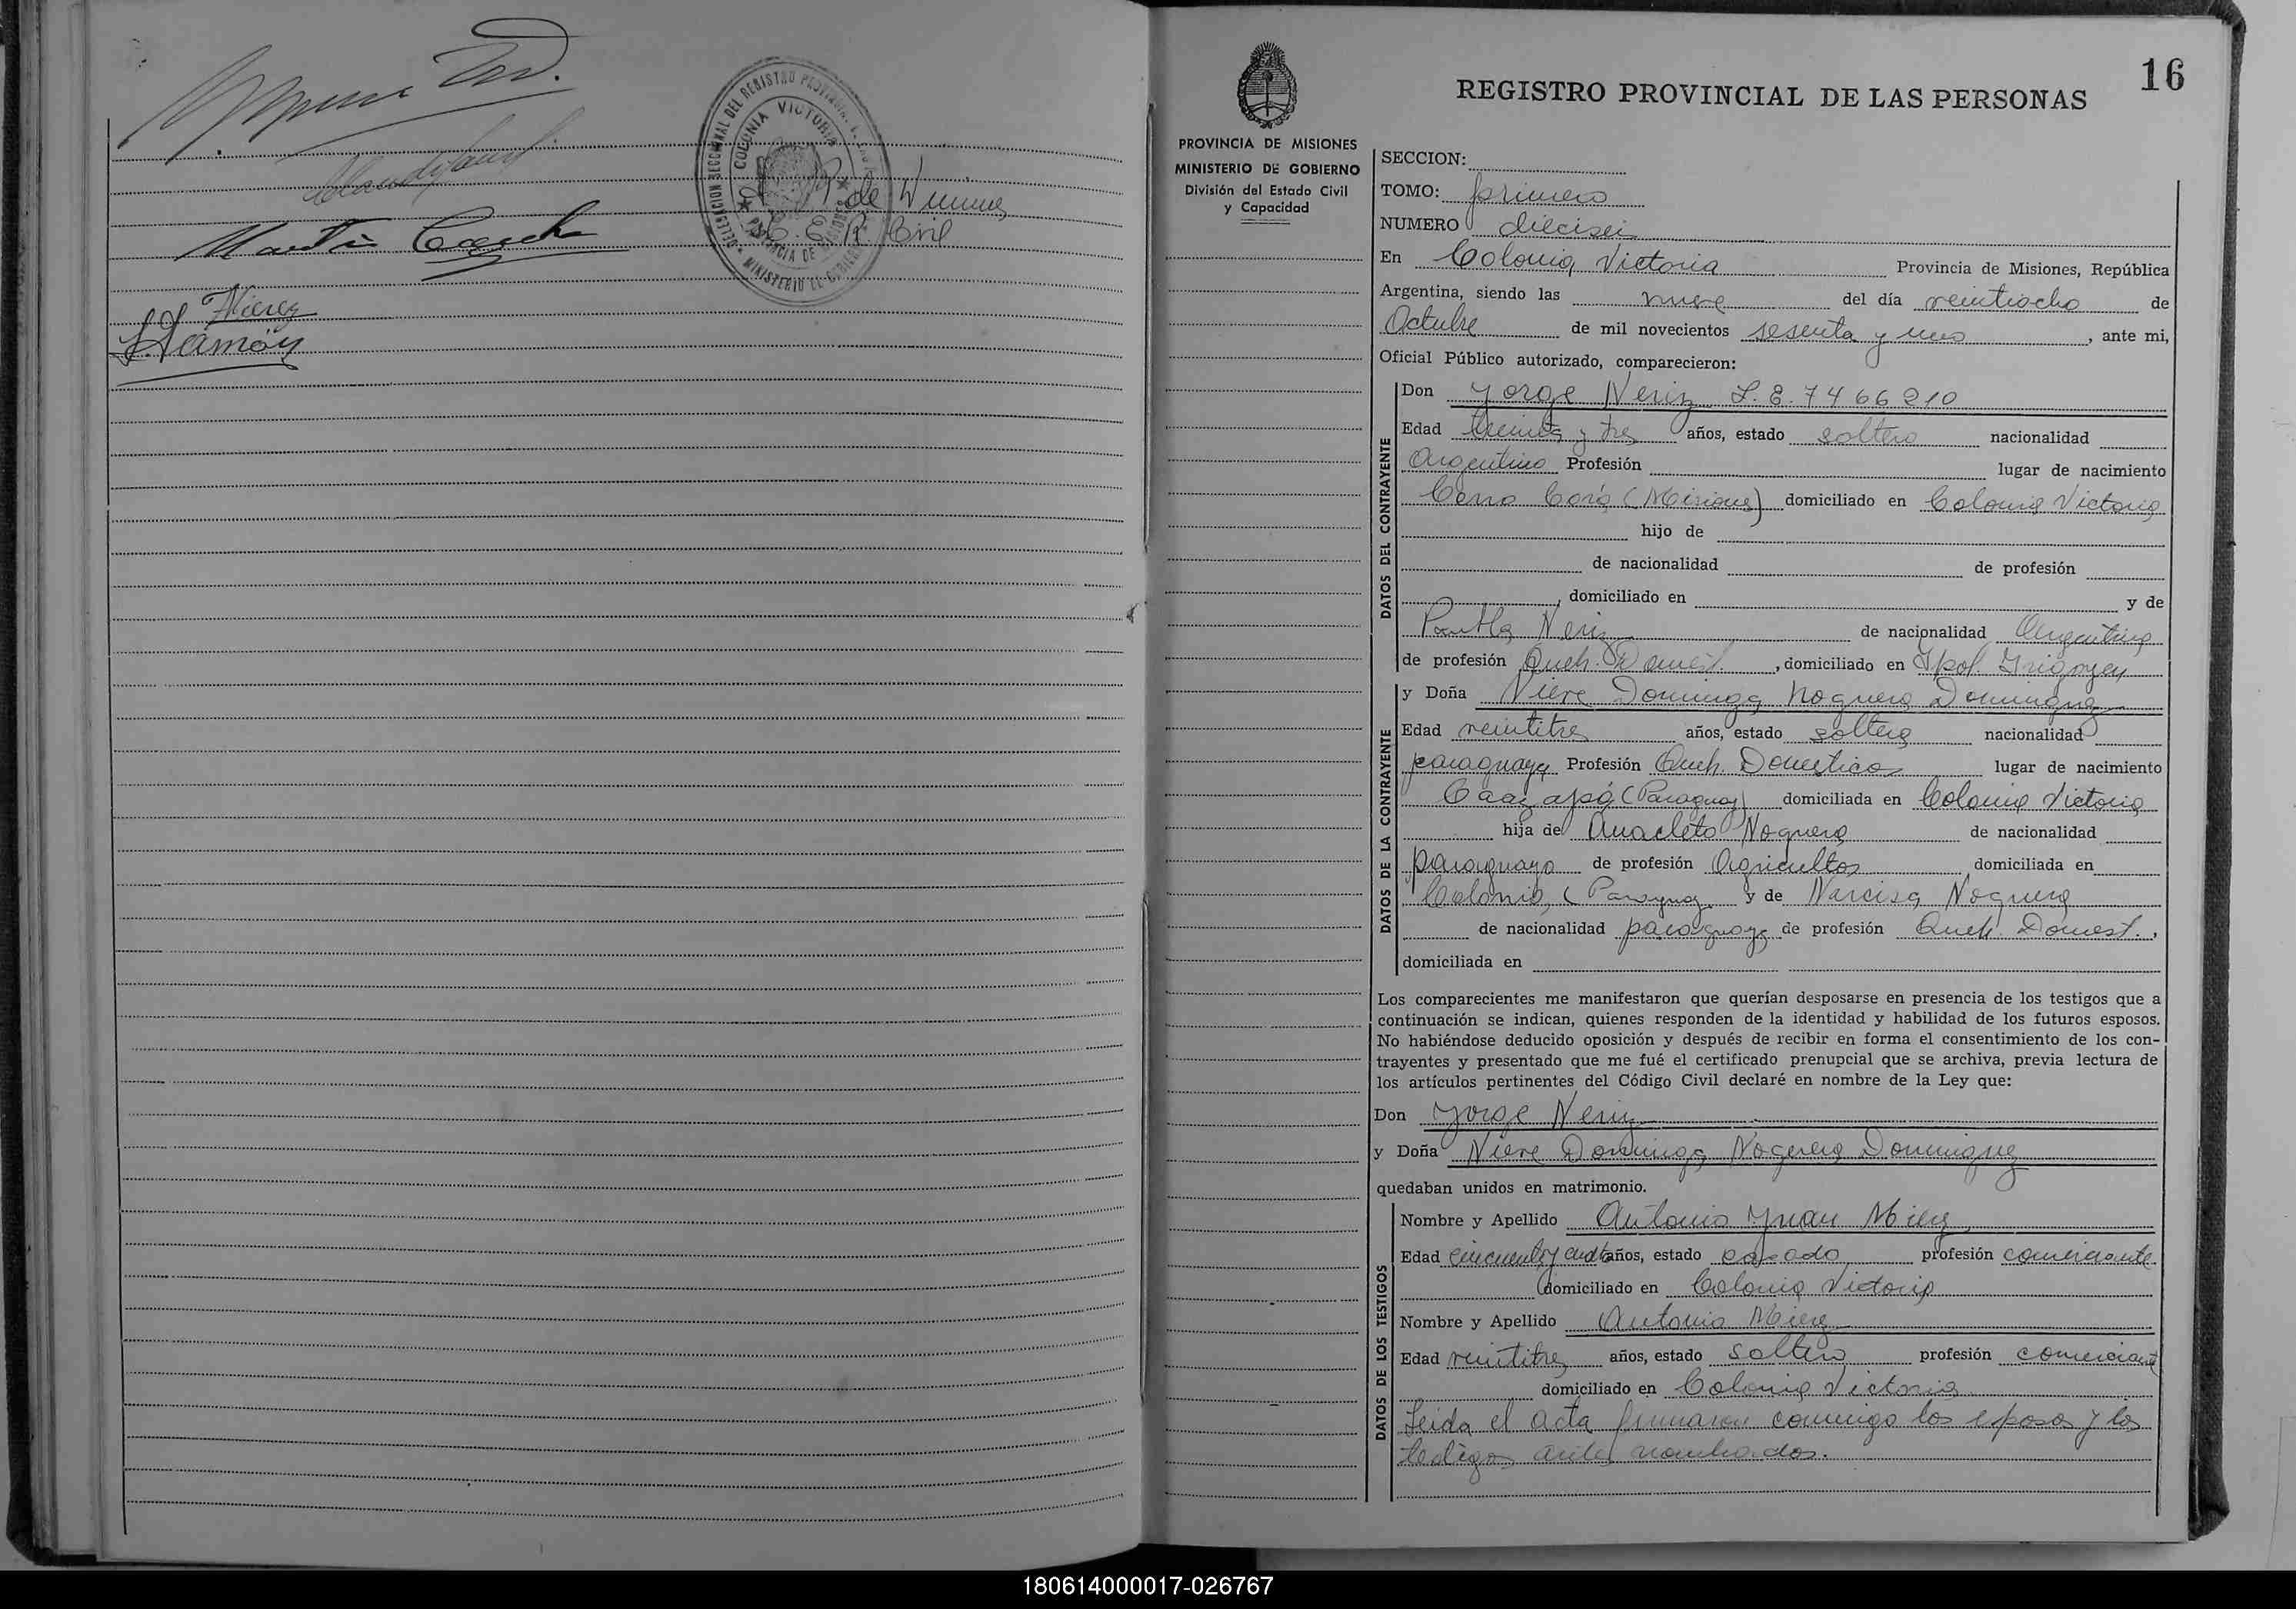 Martin
Nierez
Ramón
DELEGACION SECCIONAL DEL REGISTRO PROVINCIAL
COLONIA VICTORIA
PROVINCIA DE MISIONES
MINISTERIO DE GOBIERNO
de
R. Civil
16
REGISTRO PROVINCIAL DE LAS PERSONAS
PROVINCIA DE MISIONES
MINISTERIO DE GOBIERNO
División del Estado Civil
y Capacidad
SECCION:
TOMO: primero
NUMERO dieciseis
En Colonia Victoria Provincia de Misiones, República
Argentina, siendo las nueve del día veintiocho de
Octubre de mil novecientos sesenta y uno, ante mi,
Oficial Público autorizado, comparecieron:
DATOS DEL CONTRAYENTE
Don Jorge Neriz L.E. 7466210
Edad treinta y tres años, estado soltero nacionalidad
Argentino Profesión lugar de nacimiento
Cerro Corá (Misiones) domiciliado en Colonia Victoria
hijo de
de nacionalidad de profesión
, domiciliado en y de
Neriz de nacionalidad Argentina
de profesión Queh. Domést., domiciliado en Hpol. Irigoyen
DATOS DE LA CONTRAYENTE
y Doña Nieve Dominga Noguera Dominguez
Edad veintitres años, estado soltera nacionalidad
paraguaya Profesión Queh. Domesticos lugar de nacimiento
Caazapá (Paraguay) domiciliada en Colonia Victoria
hija de Anacleto Noguera de nacionalidad
paraguayo de profesión Agricultor domiciliada en
Colonia, (Paraguay y de Narcisa Noguera
de nacionalidad paraguaya de profesión Queh. Domest.,
domiciliada en
Los comparecientes me manifestaron que querían desposarse en presencia de los testigos que a
continuación se indican, quienes responden de la identidad y habilidad de los futuros esposos.
No habiéndose deducido oposición y después de recibir en forma el consentimiento de los con-
trayentes y presentado que me fué el certificado prenupcial que se archiva, previa lectura de
los artículos pertinentes del Código Civil declaré en nombre de la Ley que:
Don Jorge Neriz
y Doña Nieve Dominga Noguera Dominguez
quedaban unidos en matrimonio.
DATOS DE LOS TESTIGOS
Nombre y Apellido Antonio Juan Mierez
Edad cincuenta y cuatro años, estado casado profesión comerciante
domiciliado en Colonia Victoria
Nombre y Apellido Antonio Mierez
Edad veintitres años, estado soltero profesión comerciante
domiciliado en Colonia Victoria
Leida el acta firmaron conmigo los esposos y los
testigos antes nombrados.
180614000017-026767